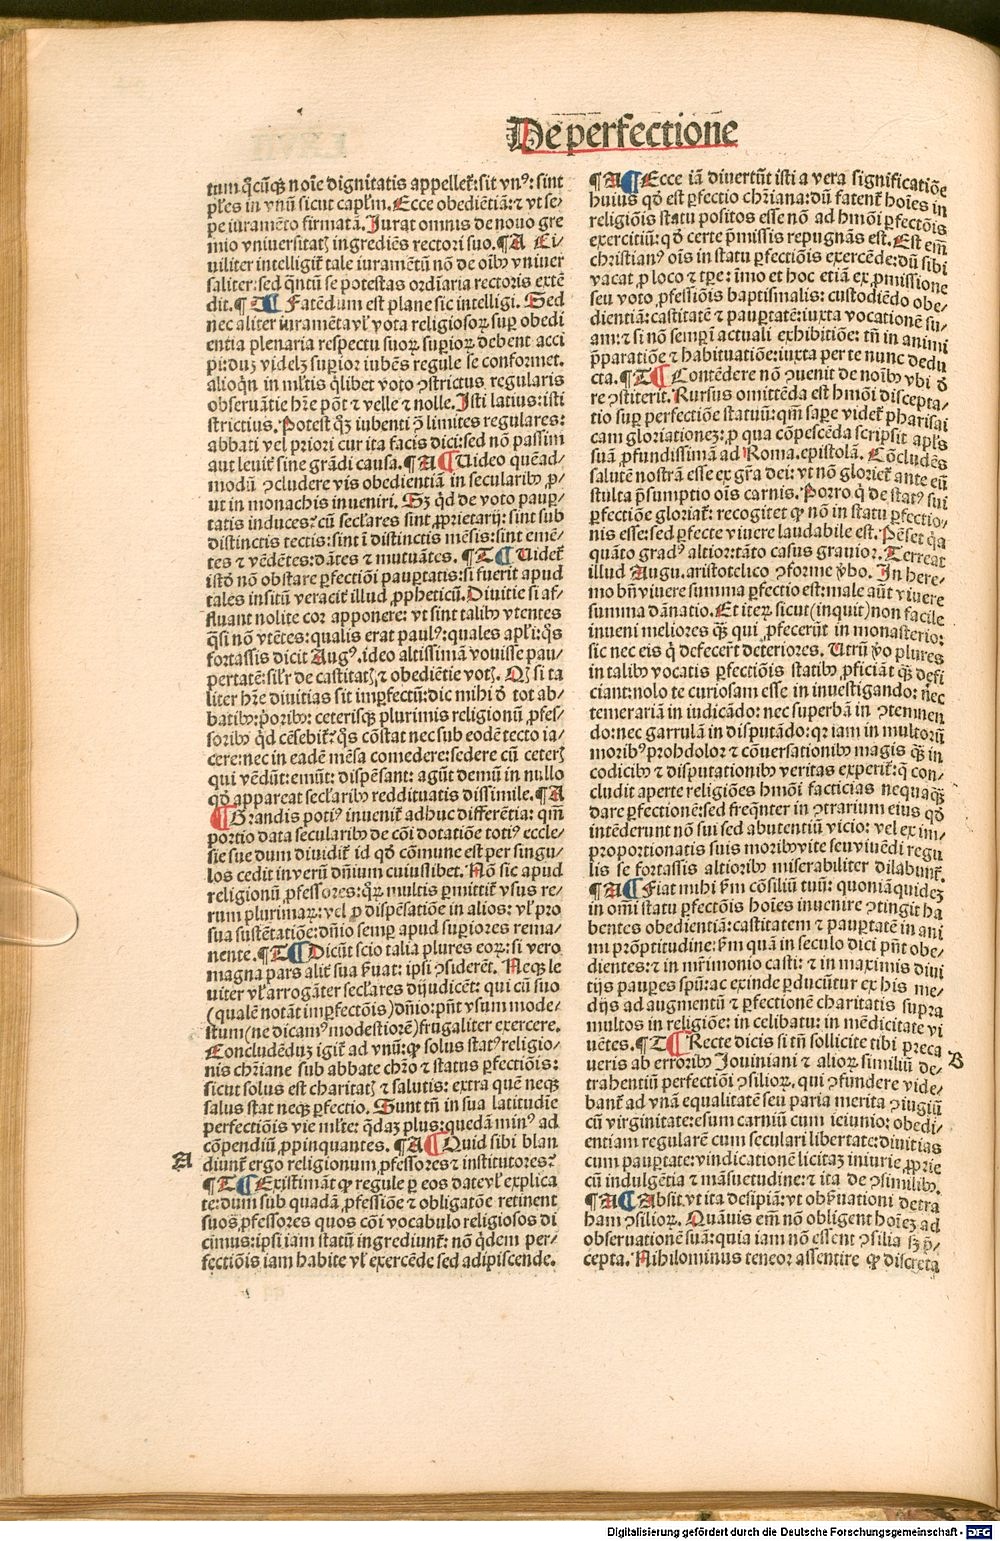 De perfectione
tum qͥcūqꝫ noīe dignitatis appellet̄: sit vnꝰ: sint
pl̄es in vnū sicut capl̄m. Ecce obediētiā: ⁊ vt se⸗
pe iuramēto firmatā. Jurat omnis de nouo gre
mio vniuersitatꝭ ingrediēs rectori suo. ¶ A Ci⸗
uiliter intelligit̄ tale iuramētū nō de oībꝰ vniuer
saliter: sed qͣntū se potestas ordiaria rectoris extē
dit. ¶ T Fatēdum est plane sic intelligi. Sed
nec aliter iuramēta vl̓ vota religiosoꝝ suꝑ obedi
entia plenaria respectu suoꝝ suꝑioꝝ debent acci
pi: duꝫ videlꝫ suꝑior iubēs regule se conformet.
alioqͥn in ml̓tis qͥlibet voto ꝯstrictus regularis
obseruātie hr̄e pōt ⁊ velle ⁊ nolle. Isti latius: isti
strictius. Potest qͥꝫ iubenti ꝯ̄ limites regulares:
abbati vel priori cur ita facis dici: sed nō passim
aut leuit̄ sine grādi causa. ¶ A Uideo quēad⸗
modū ꝯcludere vis obedientiā in secularibꝰ ꝓ⸗
ut in monachis inueniri. Sꝫ qͥd de voto pauꝑ⸗
tatis induces? cū secl̓ares sint ꝓprietarij: sint sub
distinctis tectis: sint ī distinctis mēsis: sint emē⸗
tes ⁊ vēdētes: dātes ⁊ mutuātes. ¶ T Uidet̄
istđ nō obstare ꝑfectiōi pauꝑtatis: si fuerit apud
tales insitū veracit̄ illud ꝓpheticū. Diuitie si af⸗
fluant nolite cor apponere: vt sint talibꝰ vtentes
qͣsi nō vtētes: qualis erat paulꝰ: quales apl̓i: qͦs
fortassis dicit Augꝰ. ideo altissimā vouisse pau⸗
pertatē: sil̓r de castitatꝭ, ⁊ obediētie votꝭ. Qꝫ si ta
liter hr̄e diuitias sit imꝑfectū: dic mihi đ tot ab⸗
batibꝰ: pͥoribꝰ: ceterisqꝫ plurimis religionū ꝓfes⸗
soribꝰ qͥd cēsebit̄? qͦs cōstat nec sub eodē tecto ia⸗
cere: nec in eadē mēsa comedere: sedere cū ceterꝭ
qui vēdūt: emūt: dispēsant: agūt demū in nullo
qđ appareat secl̓aribꝰ reddituatis dissimile. ¶ A
Grandis potiꝰ inuenit̄ adhuc differētia: qm̄
portio data secularibꝰ de cōi dotatiōe totiꝰ eccle⸗
sie sue dum diuidit̄ id qđ cōmune est per singu⸗
los cedit in verū dn̄ium cuiuslibet. Nō sic apud
religionū ꝓfessores: qͥꝝ multis ꝑmittit̄ vsus re⸗
rum plurimaꝝ: vel ꝓ dispēsatiōe in alios: vl̓ pro
sua sustētatiōe: dn̄io semꝑ apud suꝑiores rema⸗
nente. ¶ T Dicūt scio talia plures eoꝝ: si vero
magna pars alit̄ sua ẜuat: ipsi ꝯsiderēt. Neqꝫ le
uiter vl̓ arrogāter secl̓ares dijudicēt: qui cū suo
(qualē notāt imꝑfectōis) dn̄io: pn̄t vsum mode⸗
stum (ne dicamꝰ modestiorē) frugaliter exercere.
Concludēduꝫ igit̄ ad vnū: ꝙ solus statꝰ religio⸗
nis chr̄iane sub abbate chr̄o ⁊ status ꝑfectiōis:
sicut solus est charitatꝭ ⁊ salutis: extra quē neqꝫ
salus stat neqꝫ ꝑfectio. Sunt tn̄ in sua latitudie
perfectiōis vie ml̓te: qͥdaꝫ plus: quedā minꝰ ad
cōpendiū ꝓpinquantes. ¶ A Quid sibi blan
A
diunt̄ ergo religionum ꝓfessores ⁊ institutores?
¶ T Existimāt ꝙ regule ꝑ eos date vl̓ explica
te: dum sub quadā ꝓfessiōe ⁊ obligatōe retinent
suos ꝓfessores quos cōi vocabulo religiosos di
cimus: ipsi iam statū ingrediunt̄: nō qͥdem per⸗
fectiōis iam habite vl̓ exercēde sed adipiscende.
¶ A Ecce iā diuertūt isti a vera significatiōe
huius qđ est ꝑfectio chr̄iana: dū fatent̄ hoīes in
religiōis statu positos esse nō ad hm̄ōi ꝑfectōis
exercitiū: qđ certe pͥmissis repugnās est. Est em̄
christianꝰ oīs in statu ꝑfectiōis exercēde: dū sibi
vacat ꝓ loco ⁊ tꝑe: īmo et hoc etiā ex ꝓmissione
seu voto ꝓfessiōis baptismalis: custodiēdo obe⸗
dientiā: castitatē ⁊ pauꝑtatē: iuxta vocationē su⸗
am: ⁊ si nō semꝑ ī actuali exhibitiōe: tn̄ in animi
p̄paratiōe ⁊ habituatiōe: iuxta per te nunc dedu
cta. ¶ T Contēdere nō ꝯuenit de noībꝰ vbi đ
re ꝯstiterit. Rursus omittēda est hm̄ōi discepta⸗
tio suꝑ perfectiōe statuū: qm̄ sape videt̄ pharisai
cam gloriationeꝫ: ꝓ qua cōpescēda scripsit apl̓s
suā ꝓfundissimā ad Roma. epistolā. Cōcludēs
salutē nostrā esse ex gr̄a dei: vt nō gloriet̄ ante eū
stulta p̄sumptio oīs carnis. Porro qͥ de statꝰ sui
ꝑfectiōe gloriat̄: recogitet ꝙ nō in statu ꝑfectio⸗
nis esse: sed ꝑfecte viuere laudabile est. Pēset qͥa
quāto gradꝰ altior: tāto casus grauior. Terreat
illud Augu. aristotelico ꝯforme v̓bo. In here⸗
mo bn̄ viuere summa ꝑfectio est: male aūt viuere
summa dānatio. Et iteꝝ sicut (inquit) non facile
inueni meliores qͣꝫ qui ꝓfecerūt in monasterio:
sic nec eis qͥ defecer̄t deteriores. Utrū v̓o plures
in talibꝰ vocatis ꝑfectiōis statibꝰ ꝓficiāt qͣꝫ defi
ciant: nolo te curiosam esse in inuestigando: nec
temerariā in iudicādo: nec superbā in ꝯtemnen
do: nec garrulā in disputādo: qꝛ iam in multorū
moribꝰ prohdolor ⁊ cōuersationibꝰ magis qͣꝫ in
codicibꝰ ⁊ disputationibꝰ veritas experit̄: qͥ con⸗
cludit aperte religiōes hm̄ōi facticias nequaqͣꝫ
dare ꝑfectionē: sed freqn̄ter in ꝯtrarium eius qđ
intēderunt nō sui sed abutentiū vicio: vel ex im⸗
proportionatis suis moribꝰ vite seu viuēdi regu
lis se fortassis altioribꝰ miserabiliter dilabunt̄.
¶ A Fiat mihi ẜm cōsiliū tuū: quoniā quideꝫ
in omī statu ꝑfectōis hoīes inuenire ꝯtingit ha
bentes obedientiā: castitatem ⁊ pauꝑtatē in ani
mi prōptitudine: ẜm quā in seculo dici pn̄t obe⸗
dientes: ⁊ in mr̄imonio casti: ⁊ in maximis diui
tijs pauꝑes spū: ac exinde ꝑducūtur ex his me⸗
dijs ad augmentū ⁊ ꝑfectionē charitatis supra
multos in religiōe: in celibatu: in mēdicitate vi
uētes. ¶ T Recte dicis si tn̄ sollicite tibi preca
B
ueris ab erroribꝰ Jouiniani ⁊ alioꝝ similiū de⸗
trahentiū perfectiōi ꝯsilioꝝ, qui ꝯfundere vide⸗
bant̄ ad vnā equalitatē seu paria merita ꝯiugiū
cū virginitate: esum carniū cum ieiunio: obedi⸗
entiam regularē cum seculari libertate: diuitias
cum pauꝑtate: vindicationē licitaꝫ iniurie ꝓprie
cū indulgētia ⁊ māsuetudine: ⁊ ita de ꝯsimilibꝰ.
¶ A Absit vt ita desipiā: vt obẜuationi detra
ham ꝯsilioꝝ. Quāuis em̄ nō obligent hoīeꝫ ad
obseruationē suā: quia iam nō essent ꝯsilia sꝫ p̄⸗
cepta. Nihilominus teneor assentire ꝙ discreta
Digitalisierung gefördert durch die Deutsche Forschungsgemeinschaft - DFG